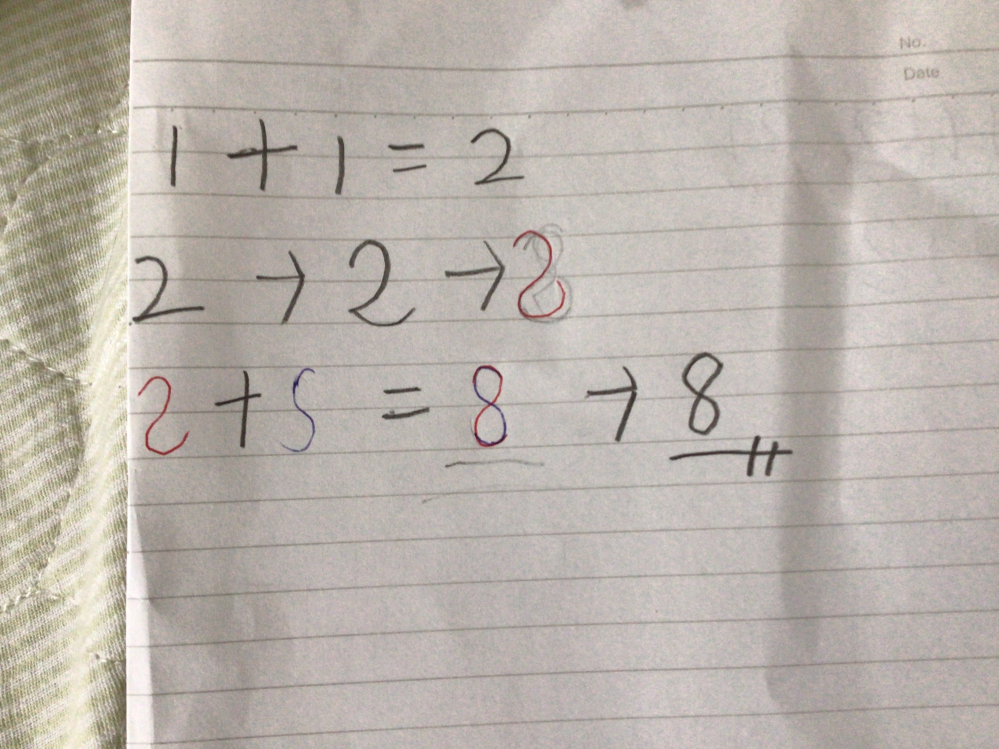 No.
Date
1 + 1 = 2
2 → 2 → 2
2 + 5 = 8 → 8